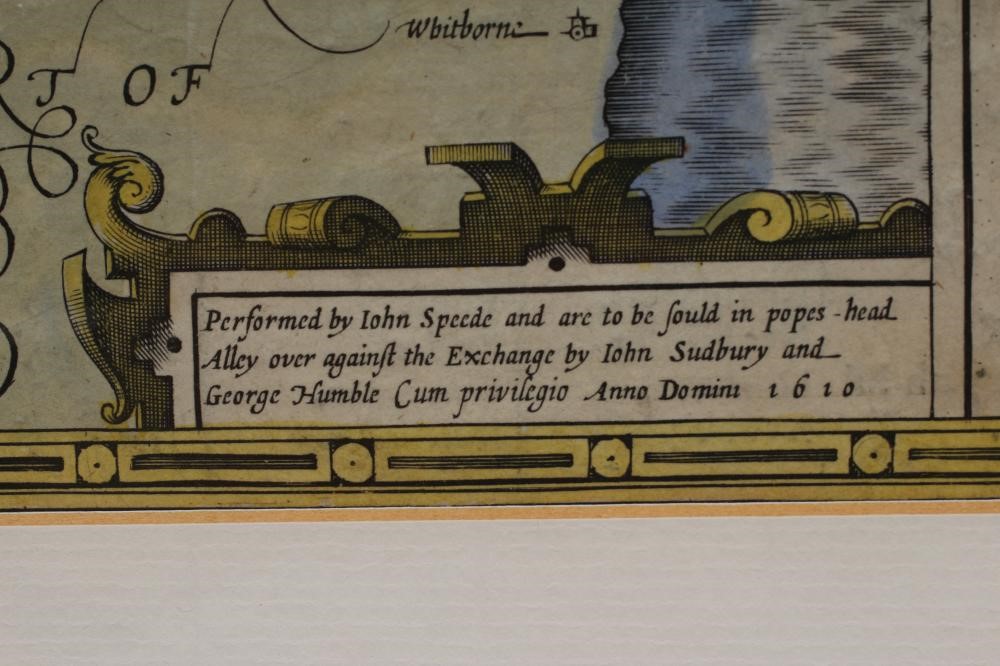 Whitborne
T OF
Performed by Iohn Speede and are to be ſould in popes-head
Alley over againſt the Exchange by Iohn Sudbury and
George Humble Cum privilegio Anno Domini 1610